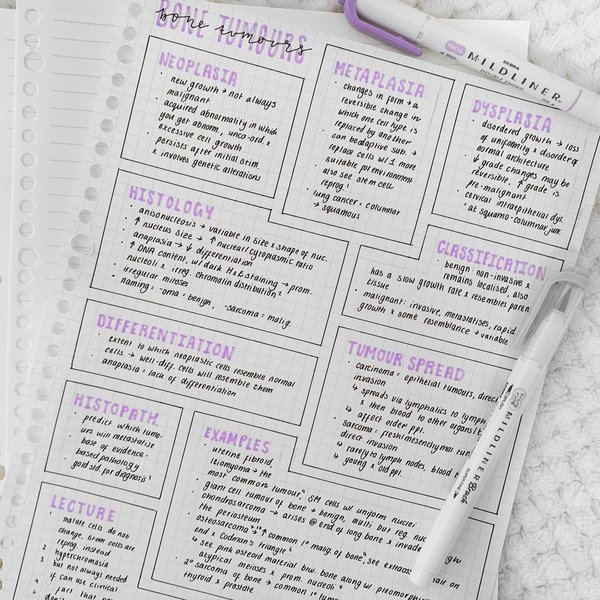 BONE TUMOURS
bone tumours
NEOPLASIA
· new growth → not always
malignant
· acquired abnormality in which
you get abnorm, unco-ord &
excessive cell growth
· persists after initial stim
& involves genetic alterations
METAPLASIA
· changes in form → a
reversible change in
which one cell type is
replaced by another
· can be adaptive sub. →
replace cells w/ 1 more
suitable for environment
· also see stem cell
reprog!
· lung cancer = columnar
→ squamous
DYSPLASIA
· disordered growth → loss
of uniformity & disorder of
normal architecture
· ↓ grade changes may be
reversible, ↑ grade is
pre-malignant
· cervical intraepithelial dys.
at squamo-columnar junc
HISTOLOGY
· anisonucleosis → variable in size & shape of nuc.
· ↑ nucleus size → ↑ nuclear/cytoplasmic ratio
· anaplasia → ↓ differentiation
· ↑ DNA content, w/ dark H&E staining → prom.
nucleoli & irreg. chromatin distribution
· irregular mitoses
· naming: -oma = benign, -sarcoma = malig.
CLASSIFICATION
· benign: non-invasive &
remains localised, also
has a slow growth rate & resembles paren
tissue
· malignant: invasive, metastasises, rapid
growth & some resemblance → variable
DIFFERENTIATION
· extent to which neoplastic cells resemble normal
cells → well-diff. cells will resemble them
· anaplasia = lack of differentiation
TUMOUR SPREAD
· carcinoma = epithelial tumours, direct
invasion
↳ spreads via lymphatics to lymph
& then blood to other organs
↳ affect older ppl.
· sarcoma: flesh/mesenchymal tum
direct invasion
↳ rarely to lymph nodes, blood
↳ young & old ppl.
HISTOPATH.
· predict which tumo-
urs will metastasise
· base of evidence-
based pathology
· gold std for diagnosis
EXAMPLES
· uterine fibroid,
leiomyoma → the
most common tumour, SM cells w/ uniform nuclei
· giant cell tumour of bone → benign, multi but reg. nuclei
· chondrosarcoma → arises @ end of long bone & invade
the periosteum
· osteosarcoma → ↑ common 1° malig of bone, see extraosseous
end & Codman's triangle
↳ see pink osteoid material btw. bone along w/ pleomorphism
atypical meioses & prom. nucleoli
· 2° sarcoma of bone → common 1° tum
thyroid & prostate
LECTURE
· mature cells do not
change, stem cells are
reprog. instead
2 hyperchromasia
3 · but not always needed
if can use clinical
fact that
ZEBRA
MILDLINER
DOUBLE ENDED
MILDLINER
Brush